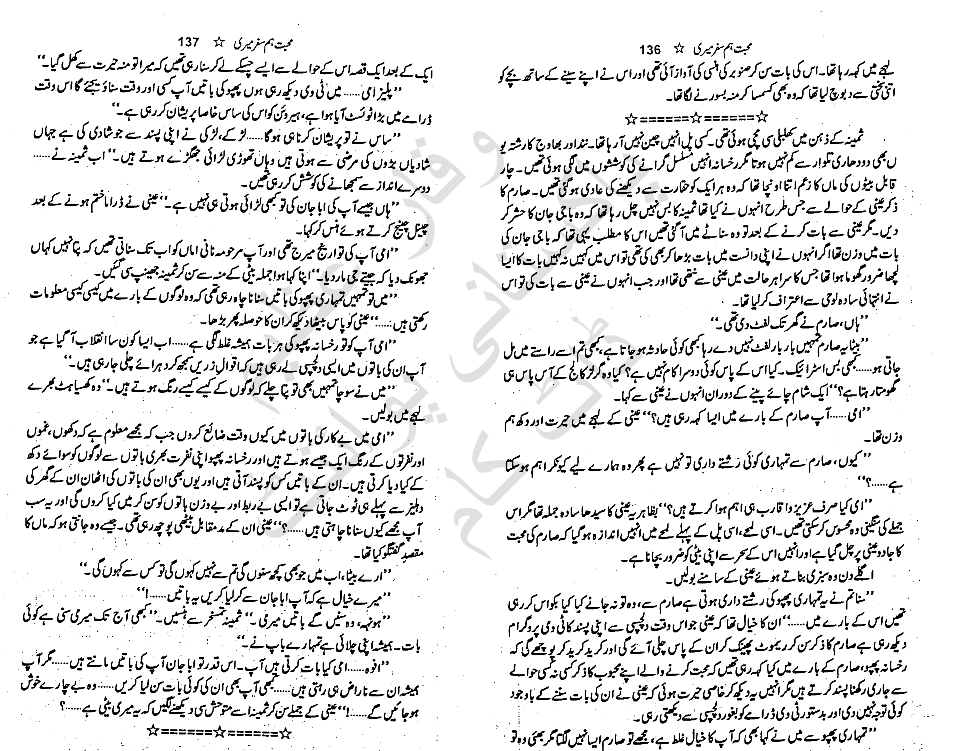 محبت ہم سفر میری ☆ 136
لہجے میں کہہ رہا تھا۔ اس کی بات سن کر صنوبر کی ہنسی کی آواز آئی تھی اور اس نے اپنے سینے کے ساتھ بچے کو
اتنی سختی سے دبوچ لیا تھا کہ وہ بھی کسمسا کر منہ بسورنے لگا تھا۔
☆======☆======☆
ثمینہ کے ذہن میں کھلبلی سی مچی ہوئی تھی۔ کسی پل انہیں چین نہیں آ رہا تھا۔ نند اور بھاوج کا رشتہ یوں
بھی دو دھاری تلوار سے کم نہیں ہوتا مگر رخسانہ انہیں مسلسل گرانے کی کوششوں میں لگی ہوئی تھیں۔ چار
قابل بیٹوں کی ماں کا زعم اتنا اونچا تھا کہ وہ ہر ایک کو حقارت سے دیکھنے کی عادی ہو گئی تھیں۔ صارم کا
ذکر عینی کے حوالے سے جس طرح انہوں نے کیا تھا ثمینہ کا بس نہیں چل رہا تھا کہ وہ باجی جان کا حشر کر
دیں۔ مگر عینی سے بات کرنے کے بعد تو وہ سناٹے میں آ گئی تھیں اس کا مطلب یہی تھا کہ باجی جان کی
بات میں وزن تھا اگر انہوں نے اپنی دانست میں بات بڑھا کر بھی کی تھی تو اس میں کہیں نہ کہیں بات کا ایسا
لچھا ضرور گھوما ہوا تھا جس کا سرا ہر حالت میں عینی سے نتھی تھا اور جب انہوں نے عینی سے بات کی تو اس
نے انتہائی سادہ لوحی سے اعتراف کر لیا تھا۔
”ہاں، صارم نے گھر تک لفٹ دی تھی۔“
”بیٹا یہ صارم تمہیں بار بار لفٹ نہیں دے رہا، کبھی کوئی حادثہ ہو جاتا ہے، کبھی تم اسے راستے میں مل
جاتی ہو......کبھی بس اسٹرائیک۔ کیا اس کے پاس کوئی دوسرا کام نہیں ہے؟ کیا وہ گرلز کالج کے آس پاس ہی
گھومتا رہتا ہے؟“ ایک شام چائے پینے کے دوران انہوں نے عینی سے کہا۔
”امی......آپ صارم کے بارے میں ایسا کہہ رہی ہیں؟“ عینی کے لہجے میں حیرت اور دکھ ہم
وزن تھا۔
”کیوں، صارم سے تمہاری کوئی رشتے داری تو نہیں ہے پھر وہ ہمارے لیے کیونکر اہم ہو سکتا
ہے......؟“
”امی کیا صرف عزیز و اقارب ہی اہم ہوا کرتے ہیں؟“ بظاہر یہ عینی کا سیدھا سادہ جملہ تھا مگر اس
جملے کی سنگینی وہ محسوس کر سکتی تھیں۔ اسی لمحے، اسی پل کے پہلے لمحے میں انہیں اندازہ ہو گیا کہ صارم کی محبت
کا جادو عینی پر چل گیا ہے اور انہیں اس کے سحر سے اپنی بیٹی کو ضرور بچانا ہے۔
اگلے دن وہ سبزی بناتے ہوئے عینی کے سامنے بولیں۔
”سنا تم نے یہ تمہاری پھپو کی رشتے داری ہوتی ہے صارم سے، وہ تو نہ جانے کیا کیا بکواس کر رہی
تھیں اس کے بارے میں......“ ان کا خیال تھا کہ عینی جو اس وقت دلچسپی سے اپنی پسند کا ٹی وی پروگرام
دیکھ رہی ہے صارم کا ذکر سن کر ریموٹ پھینک کر ان کے پاس چلی آئے گی اور کرید کرید کر پوچھے گی کہ
رخسانہ پھپو، صارم کے بارے میں کیا کہہ رہی تھیں کہ محبت کرنے والے اپنے محبوب کا ذکر کسی نہ کسی حوالے
سے جاری رکھنا پسند کرتے ہیں مگر انہیں یہ دیکھ کر خاصی حیرت ہوئی کہ عینی نے ان کی بات سننے کے باوجود
کوئی توجہ نہیں دی اور بدستور ٹی وی ڈرامے کو بغور دلچسپی سے دیکھتی رہی۔
”تمہاری پھپو سے میں نے کہا بھی کہ آپ کا خیال غلط ہے، مجھے تو صارم ایسا نہیں لگتا مگر بھئی وہ تو
محبت ہم سفر میری ☆ 137
ایک کے بعد ایک قصہ اس کے حوالے سے ایسے چسکے لے کر سنا رہی تھیں کہ میرا تو منہ حیرت سے کھل گیا۔“
”پلیز امی......میں ٹی وی دیکھ رہی ہوں پھپو کی باتیں آپ کسی اور وقت سنا دیجئے گا اس وقت
ڈرامے میں بڑا ٹوئسٹ آیا ہوا ہے، ہیروئن کو اس کی ساس خاصا پریشان کر رہی ہے۔“
”ساس نے تو پریشان کرنا ہی ہوگا......لڑکے، لڑکی نے اپنی پسند سے جو شادی کی ہے جہاں
شادیاں بڑوں کی مرضی سے ہوتی ہیں وہاں تھوڑی لڑائی جھگڑے ہوتے ہیں۔“ اب ثمینہ نے......
دوسرے انداز سے سمجھانے کی کوشش کر رہی تھیں۔
”ہاں جیسے آپ کی ابا جان کی تو کبھی لڑائی ہوتی ہی نہیں ہے۔“ عینی نے ڈراما ختم ہونے کے بعد
چینل چینج کرتے ہوئے ہنس کر کہا۔
”امی آپ کی تو ارینج میرج تھی اور آپ مرحومہ نانی اماں کو اب تک سناتی تھیں کہ پتا نہیں کہاں
جھونک دیا کہ جیتے جی مار دیا۔“ اپنا کہا ہوا جملہ بیٹی کے منہ سے سن کر ثمینہ جھینپ سی گئیں۔
”میں تو تمہیں تمہاری پھپو کی باتیں سنانا چاہ رہی تھی کہ وہ لوگوں کے بارے میں کیسی کیسی معلومات
رکھتی ہیں......“ عینی کو پاس بیٹھا دیکھ کر ان کا حوصلہ پھر بڑھا۔
”امی آپ کو تو رخسانہ پھپو کی ہر بات ہمیشہ غلط لگی ہے......اب ایسا کون سا انقلاب آ گیا ہے جو
آپ ان کی باتوں میں ایسی دلچسپی لے رہی ہیں کہ اقوال زریں سمجھ کر دہرائے چلی جا رہی ہیں۔“
”میں نے سوچا تمہیں بھی تو پتا چلے کہ لوگوں کے کیسے کیسے رنگ ہوتے ہیں۔“ وہ کھسیاہٹ بھرے
لہجے میں بولیں۔
”امی میں بے کار کی باتوں میں کیوں وقت ضائع کروں جب کہ مجھے معلوم ہے کہ دکھوں، غموں
اور نفرتوں کے رنگ ایک جیسے ہوتے ہیں اور رخسانہ پھپو اپنی نفرت بھری باتوں سے لوگوں کو سوائے دکھ
کے کیا دیا کرتی ہیں۔ ان کے باتیں کس کو پسند آتی ہیں اور یوں بھی ان کی باتوں کی اٹھان ان کے گھر کی
دہلیز سے پہلے ہی ٹوٹ جاتی ہے تو ایسی بے ربط اور بے وزن باتوں کو سن کر میں کیا کروں گی اور یہ سب
آپ مجھے کیوں سنانا چاہتی ہیں......؟“ عینی ان کے مدمقابل بیٹھی پوچھ رہی تھی۔ جیسے وہ جانتی ہو کہ ماں کا
مقصدِ گفتگو کیا تھا۔
”ارے بیٹا، اب میں جو بھی کچھ سنوں گی تم سے نہیں کہوں گی تو کس سے کہوں گی۔“
”میرے خیال ہے کہ آپ ابا جان سے کر لیا کریں یہ باتیں......!“
”ہونہہ، وہ سنیں گے باتیں میری۔“ ثمینہ تمسخر سے ہنسیں۔ ”کبھی آج تک میری سنی ہے کوئی
بات۔ ہمیشہ اپنی چلائی ہے تمہارے باپ نے۔“
”افوہ......امی کیا بات کرتی ہیں آپ۔ اس قدر تو ابا جان آپ کی باتیں مانتے ہیں......مگر آپ
ہمیشہ ان سے ناراض ہی رہتی ہیں......کبھی آپ بھی ان کی کوئی بات سن لیا کریں......وہ بے چارے خوش
ہو جائیں گے......!“ عینی کے جملے سن کر ثمینہ اسے متوحش سی دیکھنے لگیں کہ یہ میری بیٹی ہے......؟
☆======☆======☆